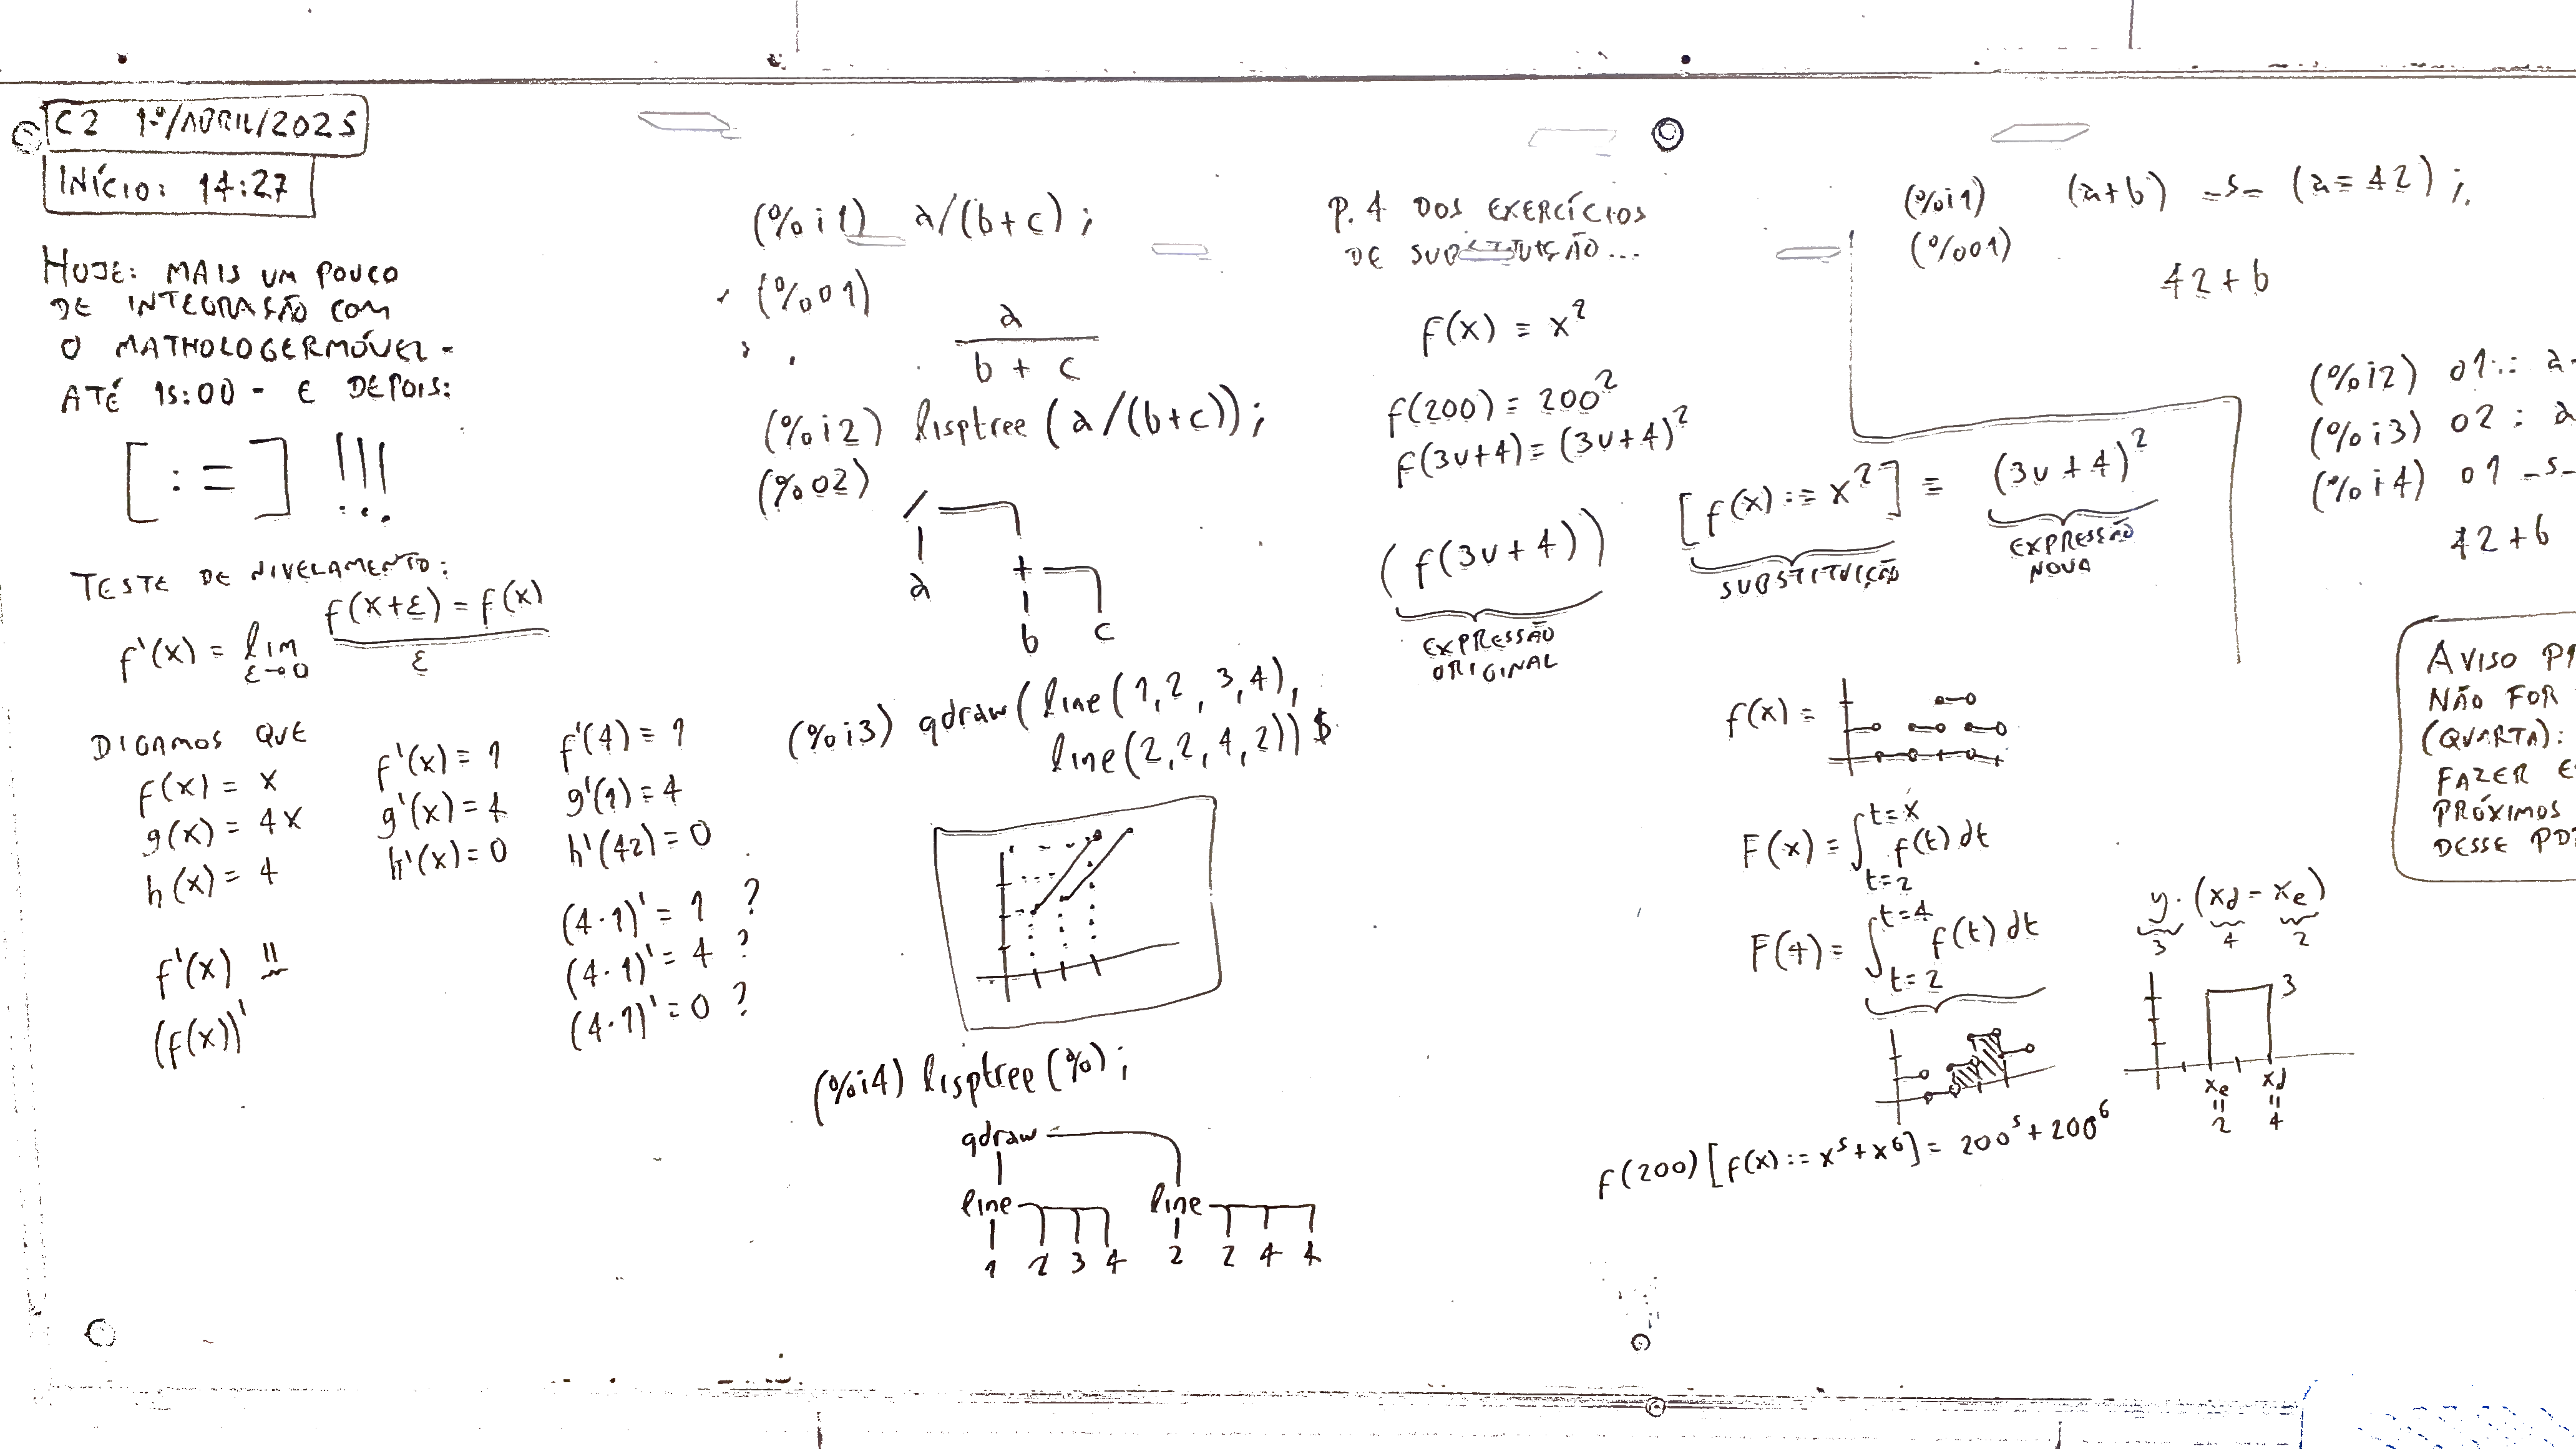 C2 1º/ABRIL/2025
INÍCIO: 14:27
HOJE: MAIS UM POUCO
DE INTEGRAÇÃO COM
O MATHOLOGERMÓVEL -
ATÉ 15:00 - E DEPOIS:
[:=] !!!
TESTE DE NIVELAMENTO:
f'(x) = lim ε→0 f(x+ε) = f(x) / ε
DIGAMOS QUE
f(x) = x
g(x) = 4x
h(x) = 4
f'(x) = 1
g'(x) = 4
h'(x) = 0
f'(4) = 1
g'(1) = 4
h'(42) = 0
(4·1)' = 1 ?
(4·1)' = 4 ?
(4·1)' = 0 ?
f'(x) =
(f(x))'
(%i1) a/(b+c);
(%o1)
a
b + c
(%i2) lisptree(a/(b+c));
(%o2)
/
a +
b c
(%i3) qdraw(line(1,2,3,4),
line(2,2,4,2))$
(%i4) lisptree(%);
qdraw
line line
1 2 3 4 2 2 4 4
P.4 DOS EXERCÍCIOS
DE SUBSTITUIÇÃO...
f(x) = x²
f(200) = 200²
f(3u+4) = (3u+4)²
(f(3u+4)) [f(x) := x²] = (3u+4)²
EXPRESSÃO
ORIGINAL
SUBSTITUIÇÃO
EXPRESSÃO
NOVA
f(x) =
F(x) = ∫ t=2 t=x f(t) dt
F(4) = ∫ t=2 t=4 f(t) dt
y · (xd - xe)
3 4 2
3
xe xd
= =
2 4
f(200) [f(x) := x⁵+x⁶] = 200⁵+200⁶
(%i1) (a+b) _s_ (a=42);
(%o1)
42+b
(%i2) o1: a
(%i3) o2: a
(%i4) o1 _s_
42+b
AVISO
NÃO FOR
(QUARTA):
FAZER
PRÓXIMOS
DESSE